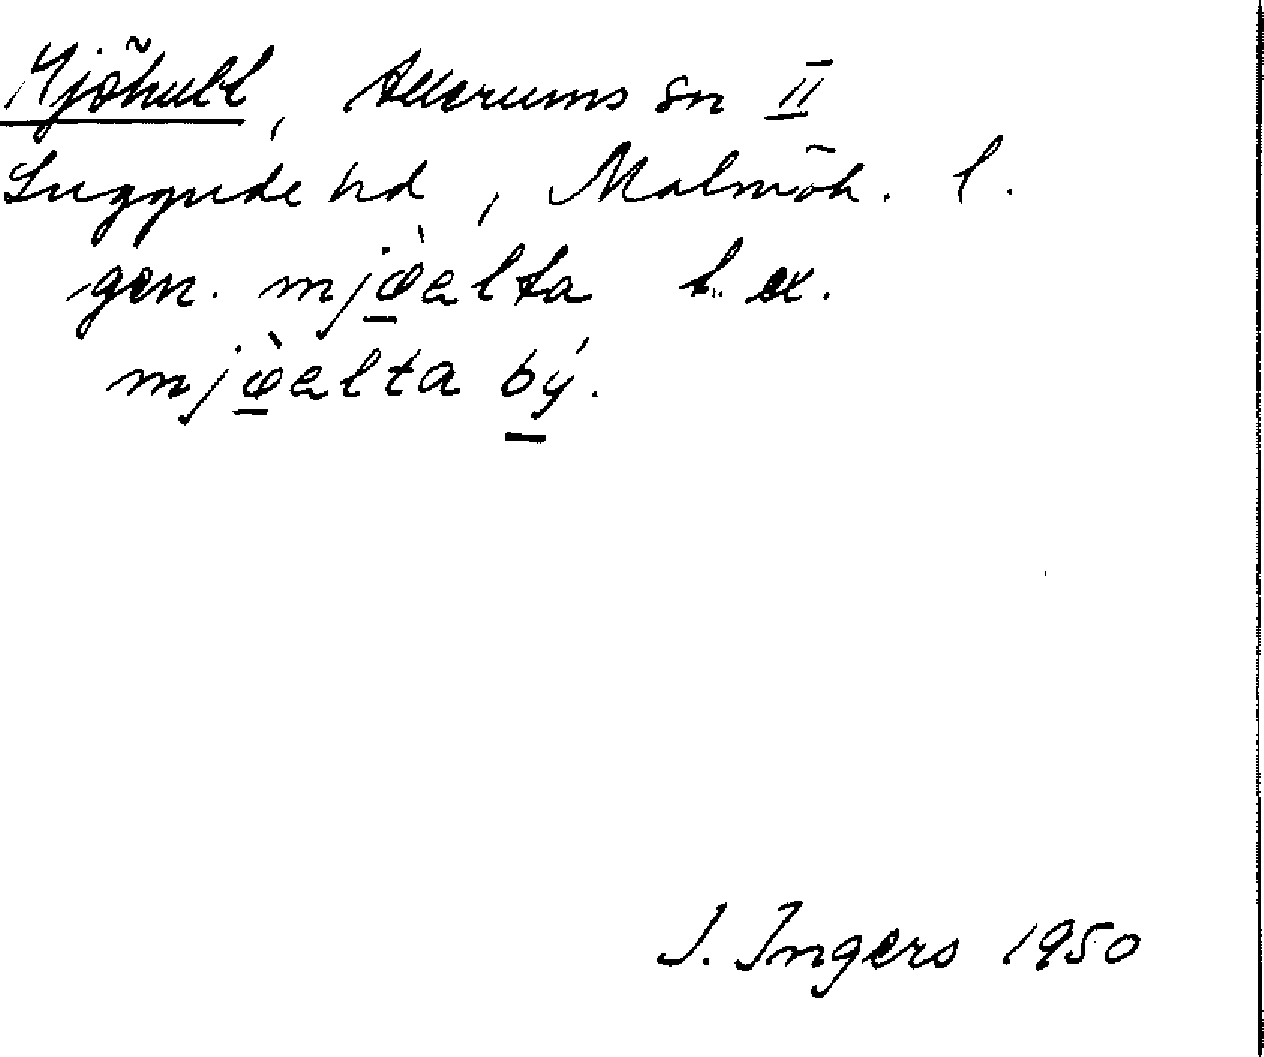 Mjöhult, Allerums sn II
Luggude hd, Malmöh. l.
gen. mjø̀alta t. ex.
mjø̀alta bý.
I. Ingers 1950